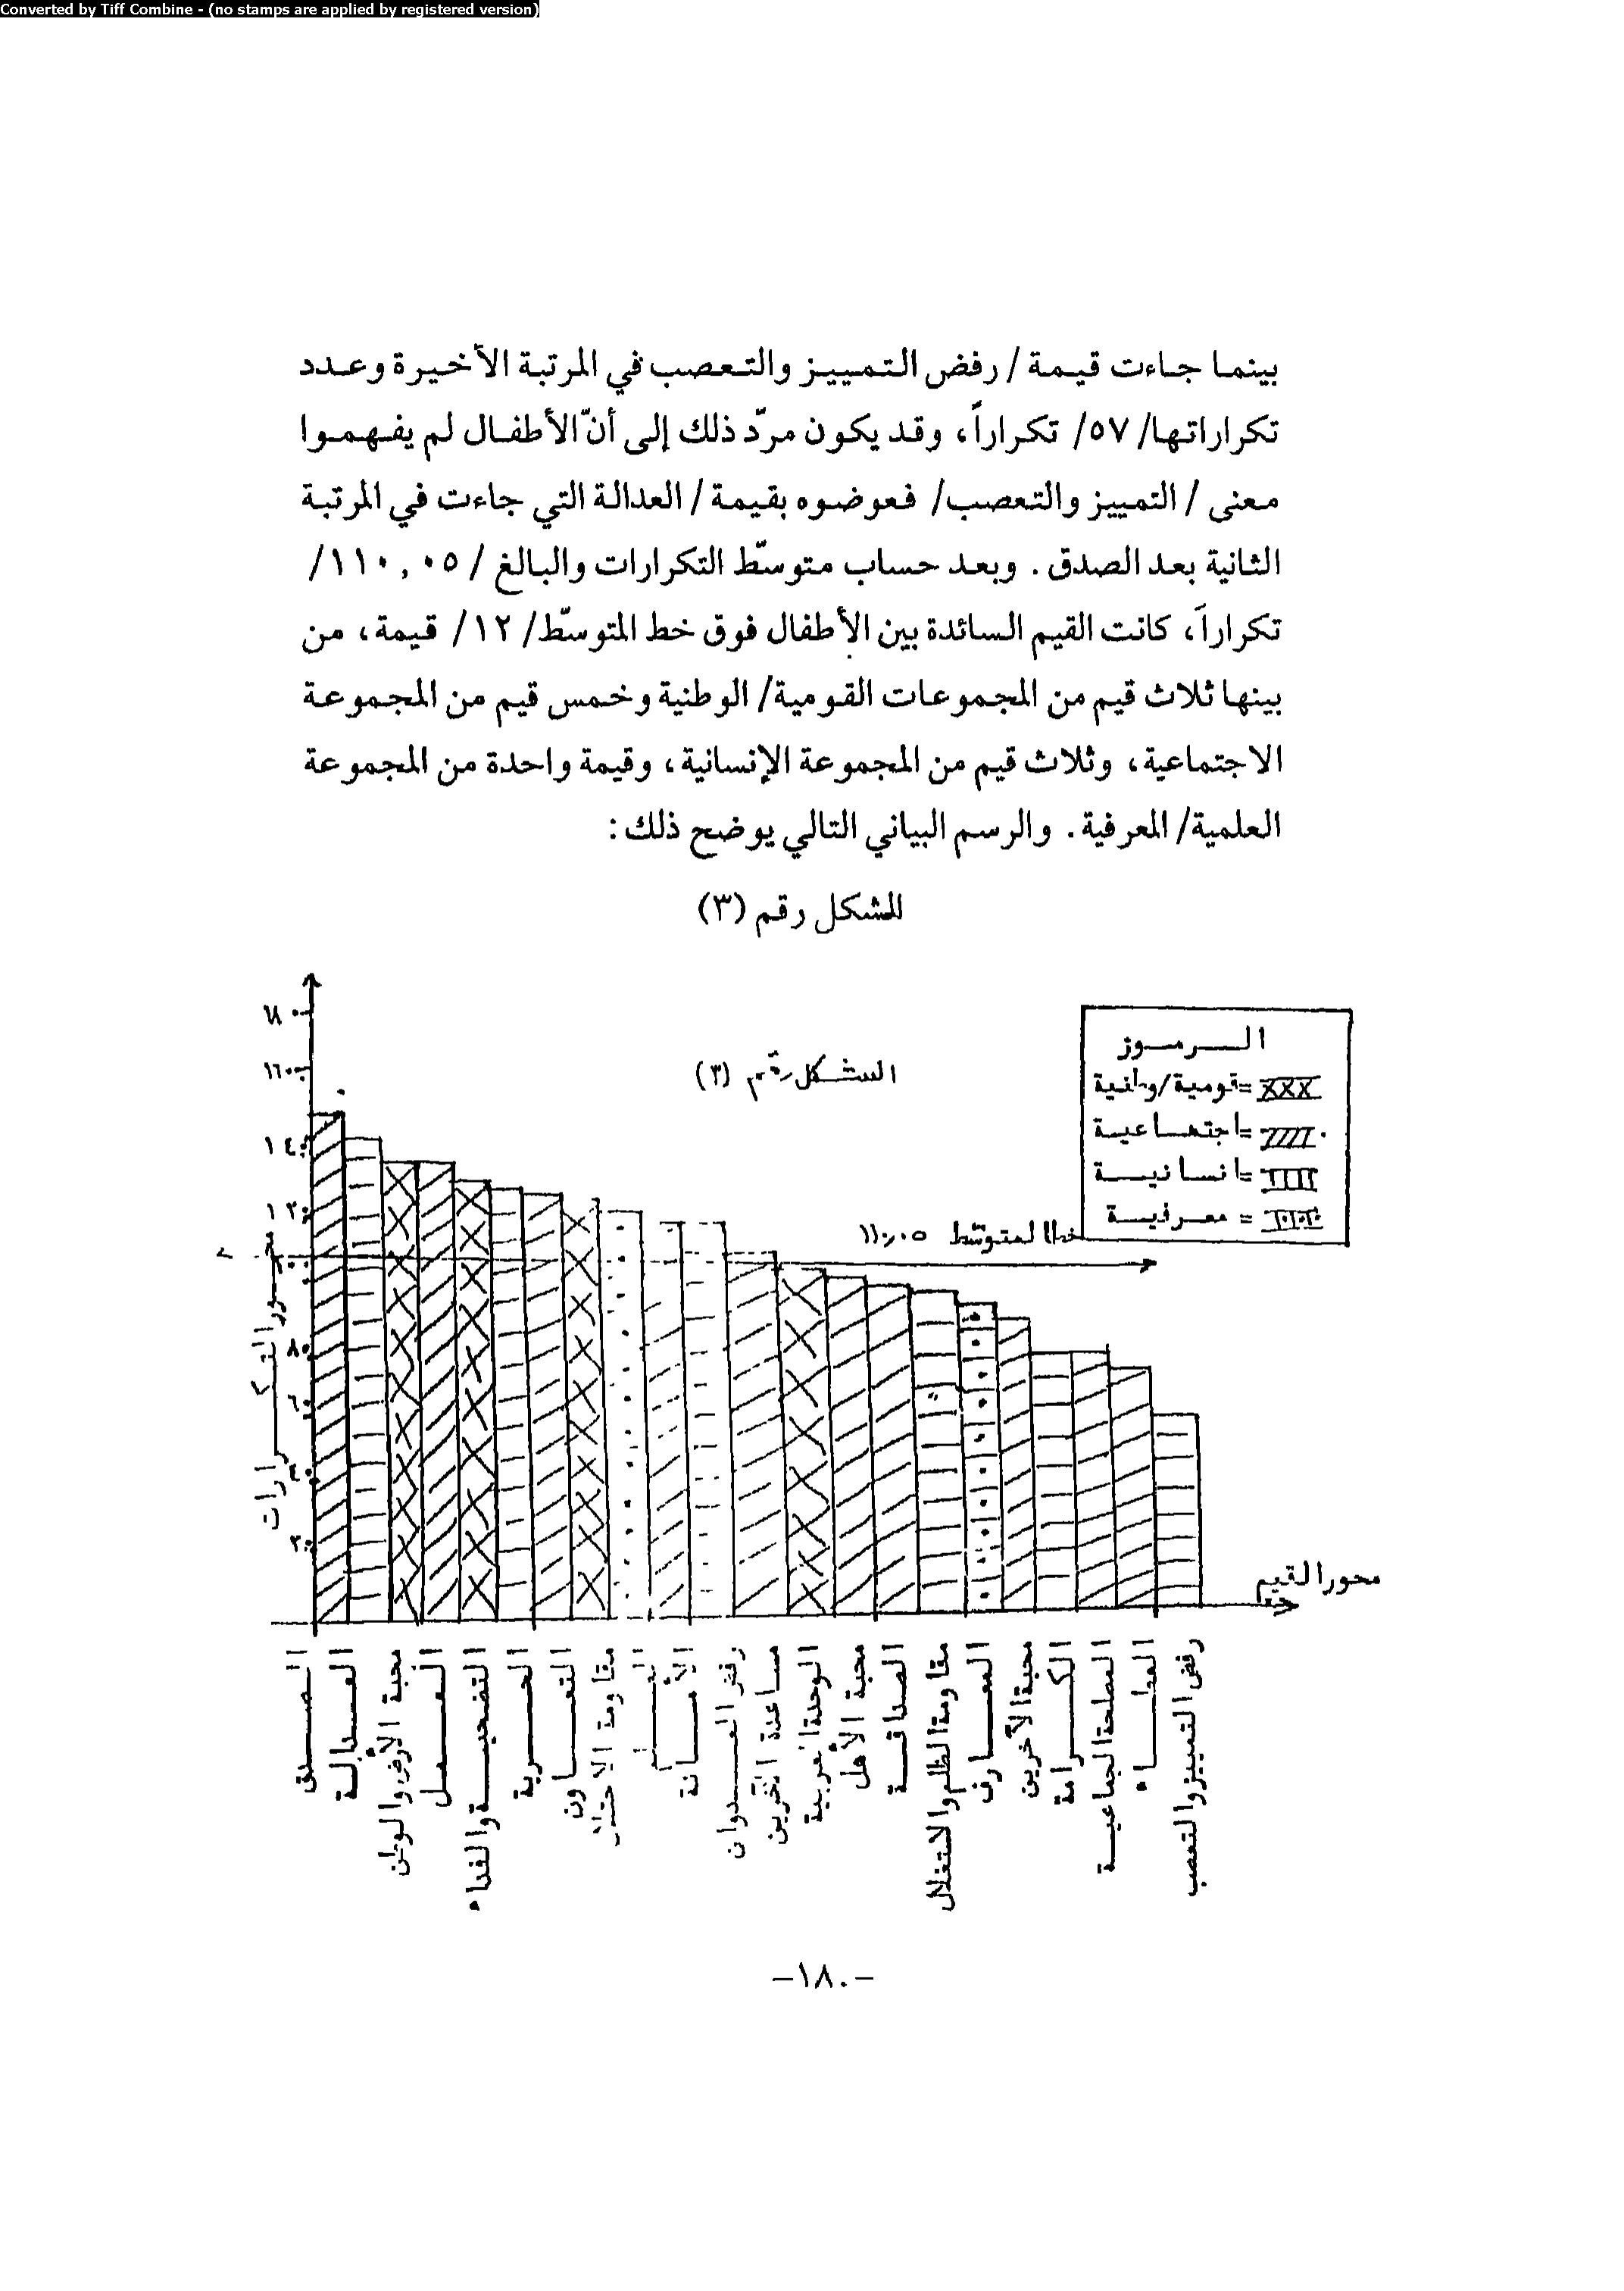 Converted by Tiff Combine - (no stamps are applied by registered version)
بينما جاءت قيمة / رفض التمييز والتعصب في المرتبة الأخيرة وعدد
تكراراتها/ ٥٧/ تكراراً، وقد يكون مردّ ذلك إلى أنّ الأطفال لم يفهموا
معنى / التمييز والتعصب/ فعوضوه بقيمة / العدالة التي جاءت في المرتبة
الثانية بعد الصدق. وبعد حساب متوسّط التكرارات والبالغ / ١١٠,٠٥/
تكراراً، كانت القيم السائدة بين الأطفال فوق خط المتوسّط/ ١٢/ قيمة، من
بينها ثلاث قيم من المجموعات القومية/ الوطنية وخمس قيم من المجموعة
الاجتماعية، وثلاث قيم من المجموعة الإنسانية، وقيمة واحدة من المجموعة
العلمية/ المعرفية. والرسم البياني التالي يوضح ذلك:
الشكل رقم (٣)
الشكل رقم (٣)
الرموز
XXX =قومية/وطنية
//// =اجتماعية
=انسانية
= معرفية
١٦٠
١٤٠
١٢٠
١٠٠
٨٠
٦٠
٢٠
محور التكرارات
خط المتوسّط ١١٠,٠٥
محور القيم
الصدق
العدالة
محبة الأرض والوطن
العمل
التضحية والفداء
الحرية
التعاون
مقاومة الاحتلال
الأمانة
رفض العدوان
مساعدة الآخرين
الوحدة العربية
محبة الأهل
الصداقة
مقاومة الظلم والاستغلال
المعارف
محبة الآخرين
الكرامة
المصلحة الجماعية
رفض التمييز والتعصب
-١٨٠-